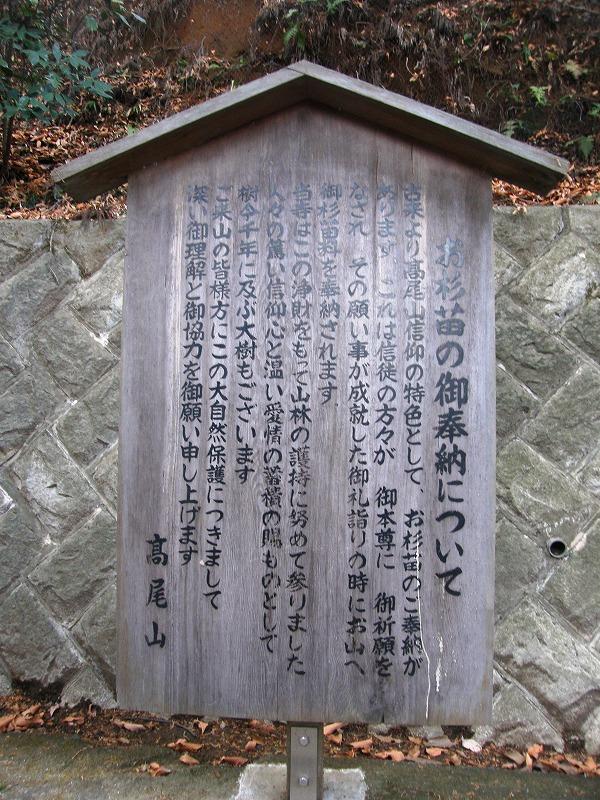 お杉苗の御奉納について
古来より高尾山信仰の特色として、お杉苗のご奉納が
あります。これは信徒の方々が 御本尊に 御祈願を
なされ その願い事が成就した御礼詣りの時にお山へ
御杉苗を奉納されます
当寺はこの浄財をもって山林の護持に努めて参りました
人々の篤い信仰心と温い愛情の蓄積の賜ものとして
樹令千年に及ぶ大樹もございます
ご来山の皆様方にこの大自然保護につきまして
深い御理解と御協力を御願い申し上げます
髙尾山